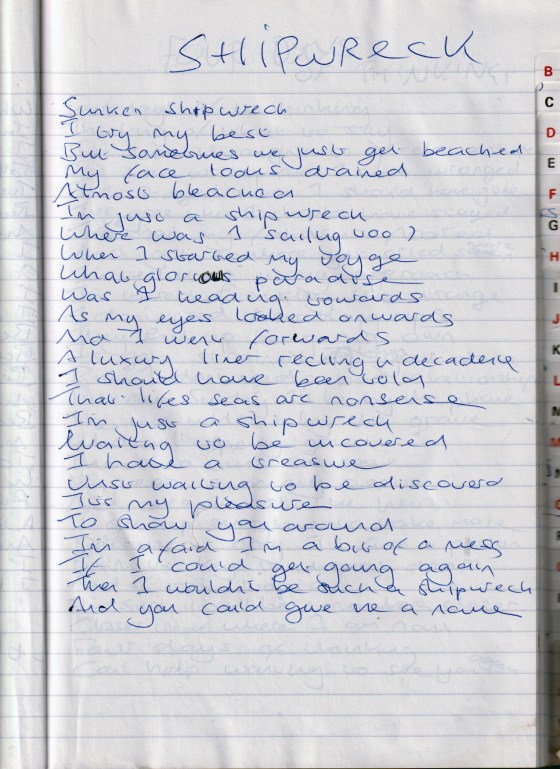 SHIPWRECK
Sunken shipwreck
I try my best
But sometimes we just get beached
My face looks drained
Almost bleached
Im just a shipwreck
Where was I sailing too?
When I started my voyge
What glorious paradise
Was I heading towards
As my eyes looked onwards
And I went forwards
A luxury liner reeling n decadence
I should have been told
That lifes seas are nonsense
Im just a shipwreck
Waiting to be uncovered
I have a treasure
Just waiting to be discoverd
Its my pleasure
To show you around
Im afaid Im a bit of a mess
If I could get going again
Then I wouldnt be such a shipwreck
And you could give me a name
B
C
D
E
F
G
H
I
J
K
L
M
N